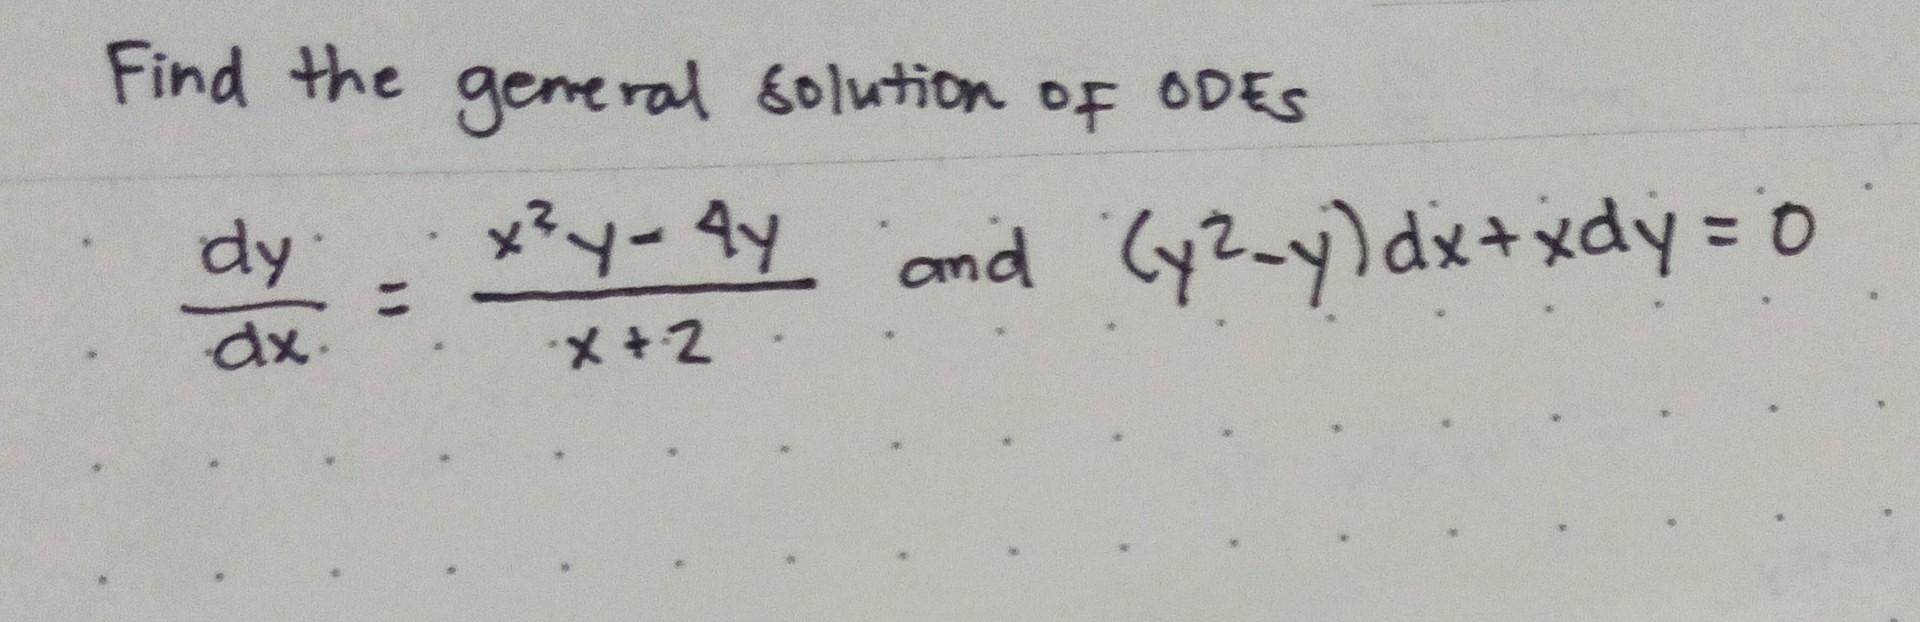 Find the general solution of ODEs
dy/dx = (x²y - 4y)/(x + 2) and (y² - y)dx + xdy = 0